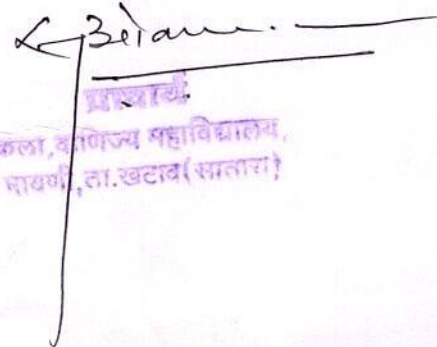 प्राचार्य
कला, वाणिज्य महाविद्यालय,
मायणी, ता. खटाव (सातारा)